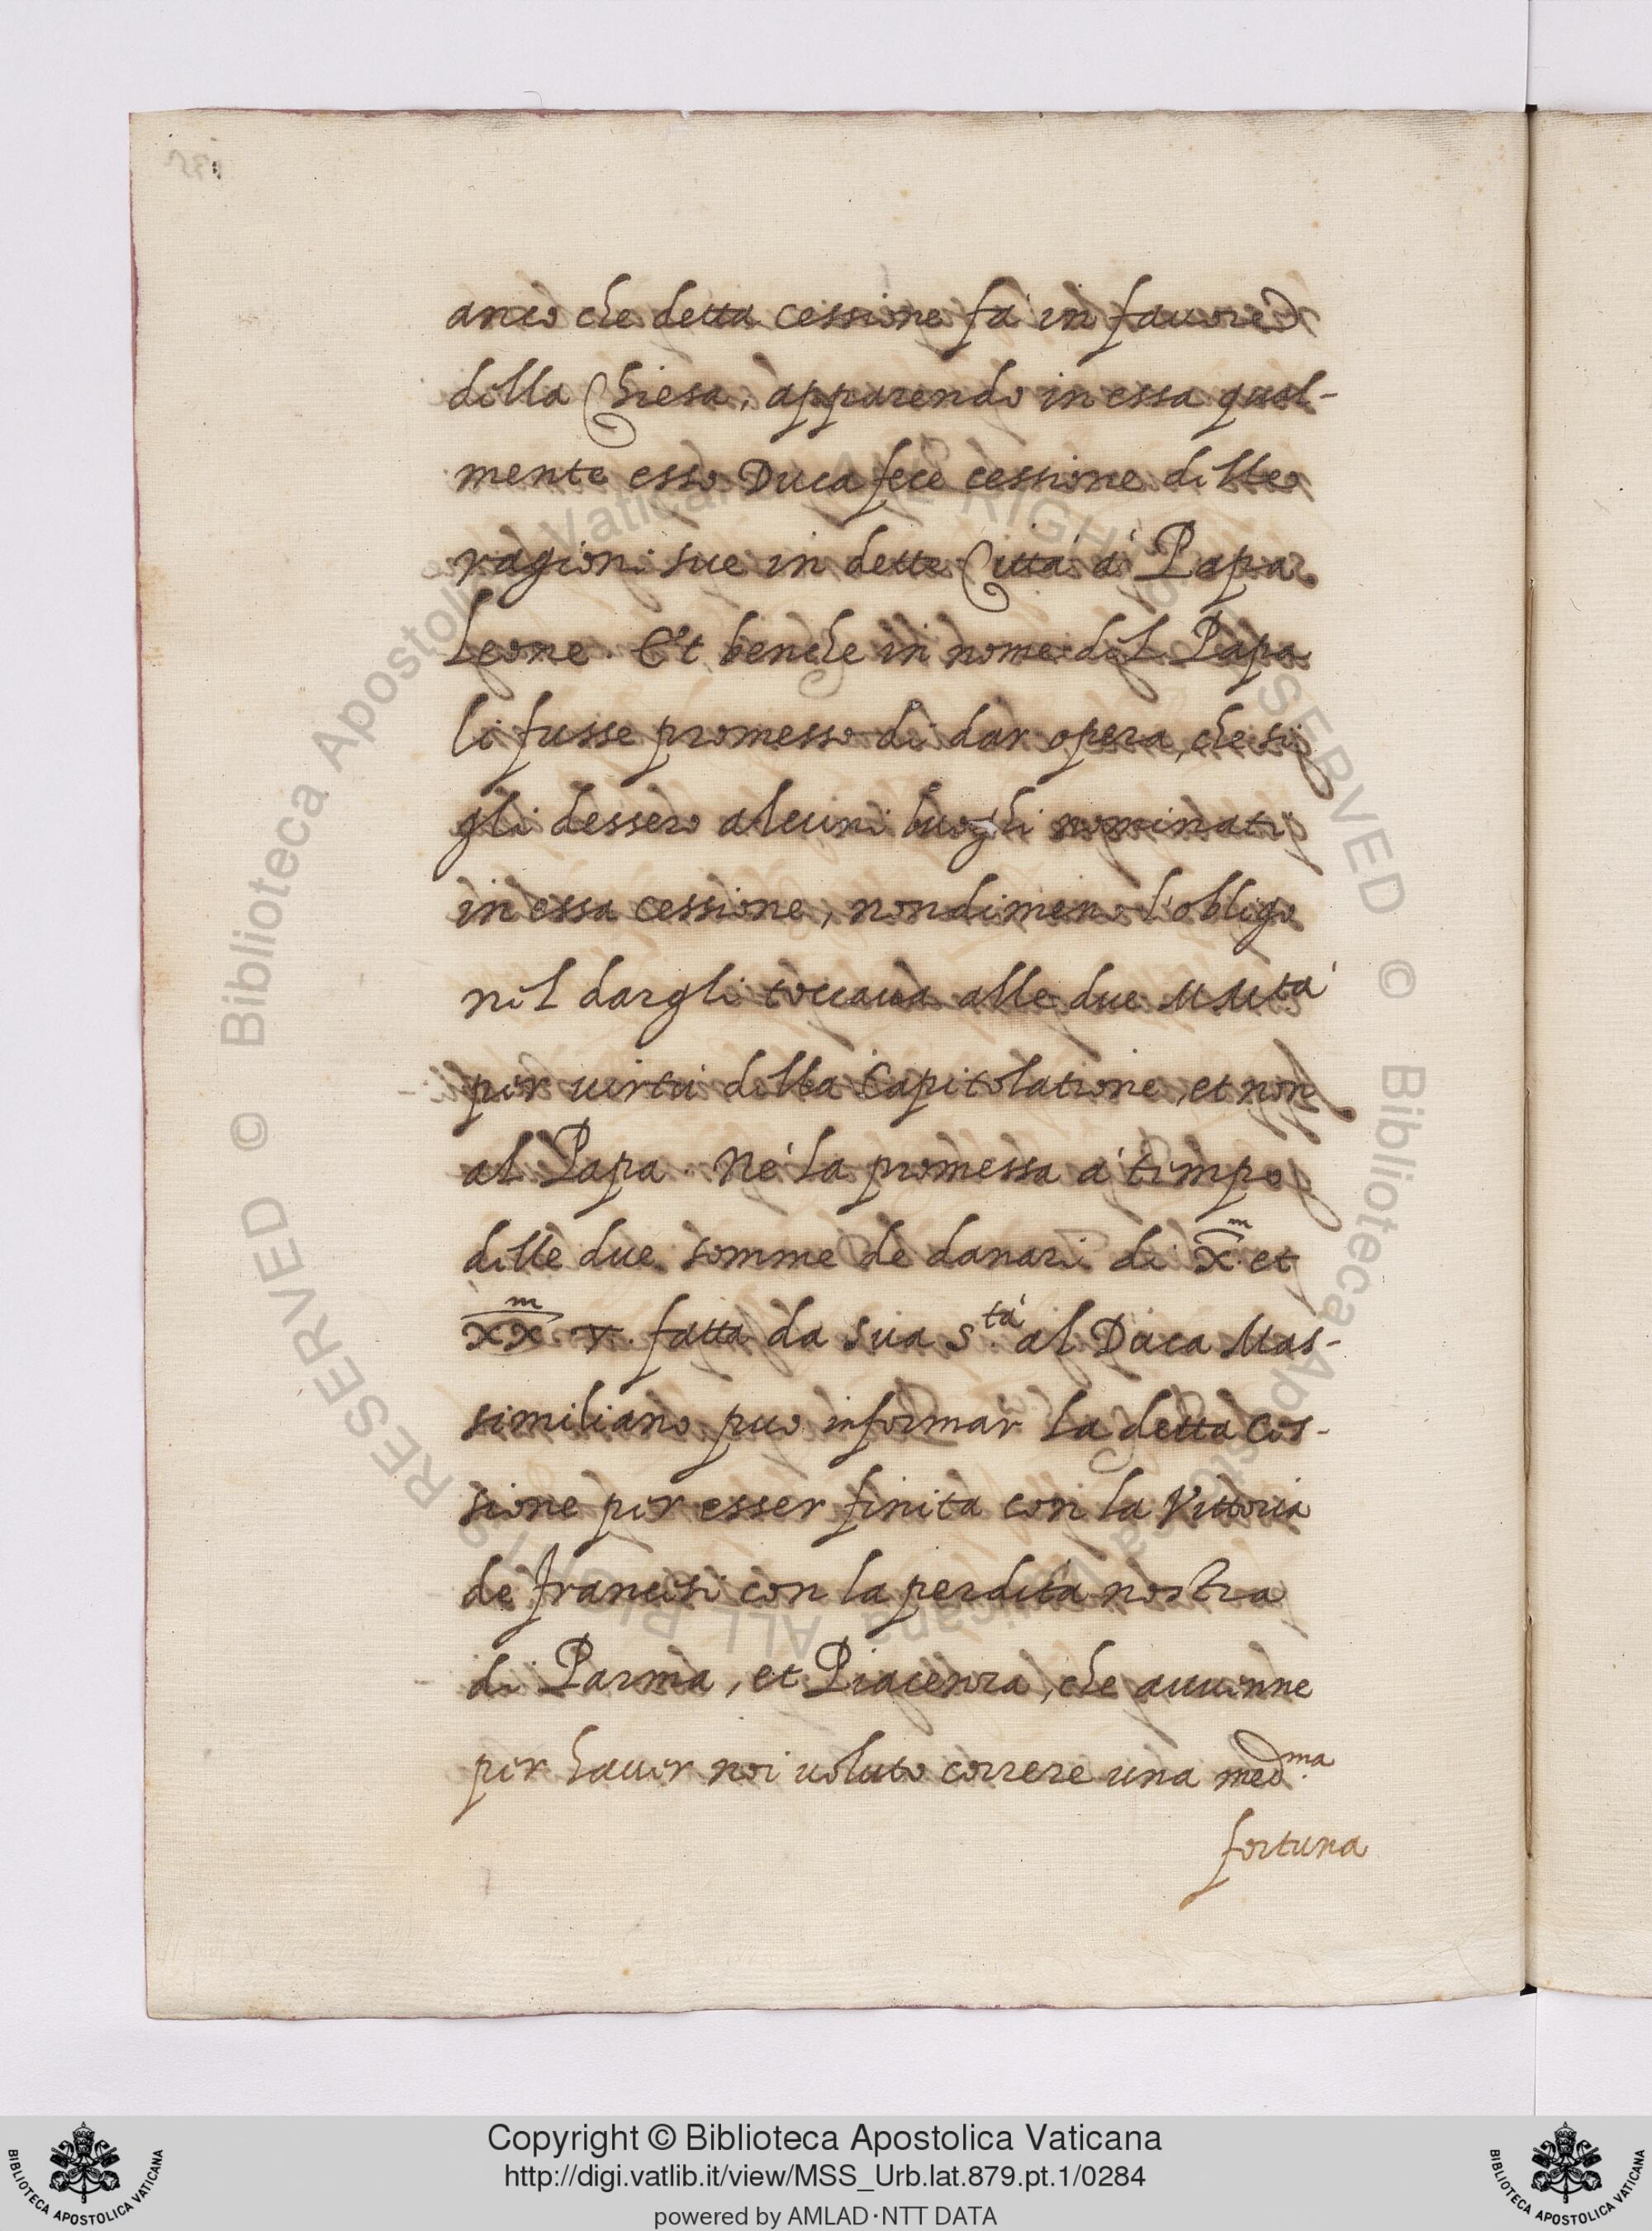 anco che detta cessione fa in favore
della Chiesa, apparendo in essa qual-
mente esso Duca fece cessione delle
ragioni sue in dette Città à Papa
Leone. Et benche in nome del Papa
li fusse promesso di dar opera, che si
gli dessero alcuni luoghi nominati
in essa cessione, nondimeno l'obligo
nel dargli toccaua alle due MMtà
per uirtù della Capitolatione, et non
al Papa. Né la promessa à tempo
delle due somme de danari di X̅ᵐ et
X̅X̅ᵐ fatta da sua S.tà al Duca Mas-
similiano puo informar la detta Ces-
sione per esser finita con la Vittoria
de francesi con la perdita nostra
di Parma, et Piacenza, che auuenne
per hauer noi uoluto correre una med.ma
fortuna
© Biblioteca Apostolica Vaticana ALL RIGHTS RESERVED © Biblioteca Apostolica Vaticana ALL RIGHTS RESERVED
Copyright © Biblioteca Apostolica Vaticana
http://digi.vatlib.it/view/MSS_Urb.lat.879.pt.1/0284
powered by AMLAD·NTT DATA
BIBLIOTECA APOSTOLICA VATICANA
BIBLIOTECA APOSTOLICA VATICANA